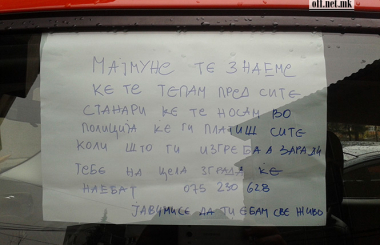 off.net.mk
МАЈМУНЕ ТЕ ЗНАЕМЕ
КЕ ТЕ ТЕПАМ ПРЕД СИТЕ
СТАНАРИ КЕ ТЕ НОСАМ ВО
ПОЛИЦИЈА КЕ ГИ ПЛАТИШ СИТЕ
КОЛИ ШТО ГИ ИЗГРЕБА А ЗАРАДИ
ТЕБЕ НА ЦЕЛА ЗГРАДА КЕ
НАЕБАТ 075 230 628
ЈАВИ МИ СЕ ДА ТИ ЕБАМ СВЕ ЖИВО